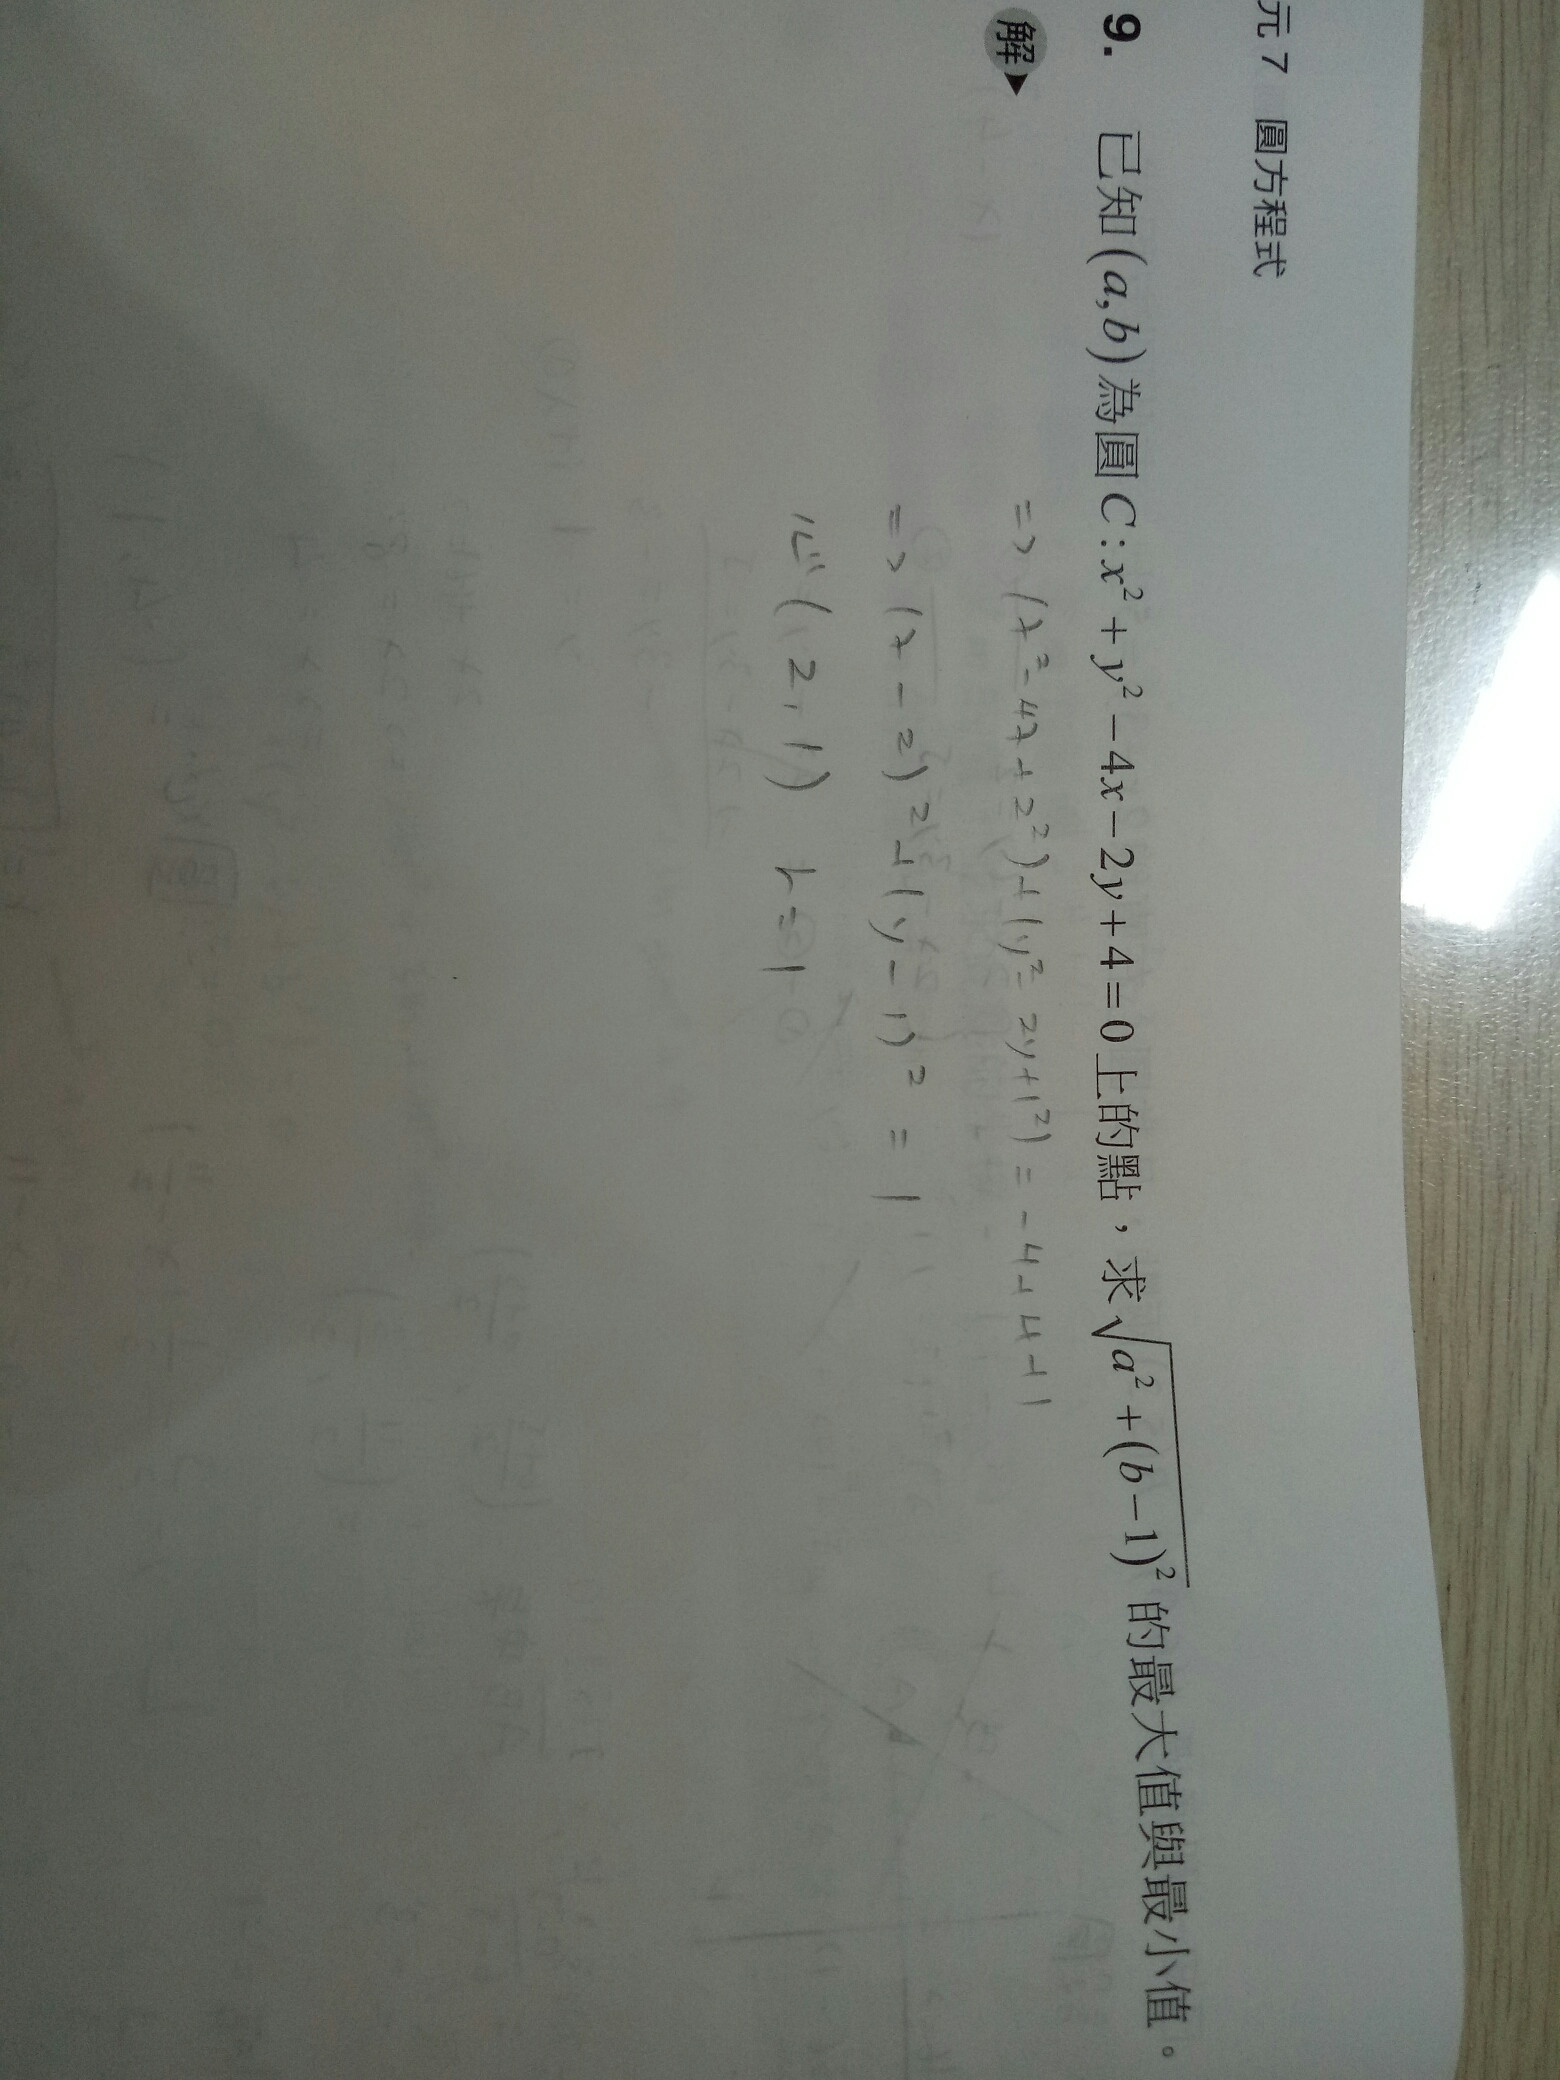 元7 圓方程式
9. 已知(a,b)為圓C:x²+y²-4x-2y+4=0上的點，求√(a²+(b-1)²)的最大值與最小值。
解
=> (x²-4x+2²)+(y²-2y+1²)=-4+4+1
=> (x-2)²+(y-1)²=1
心(2,1) r=1